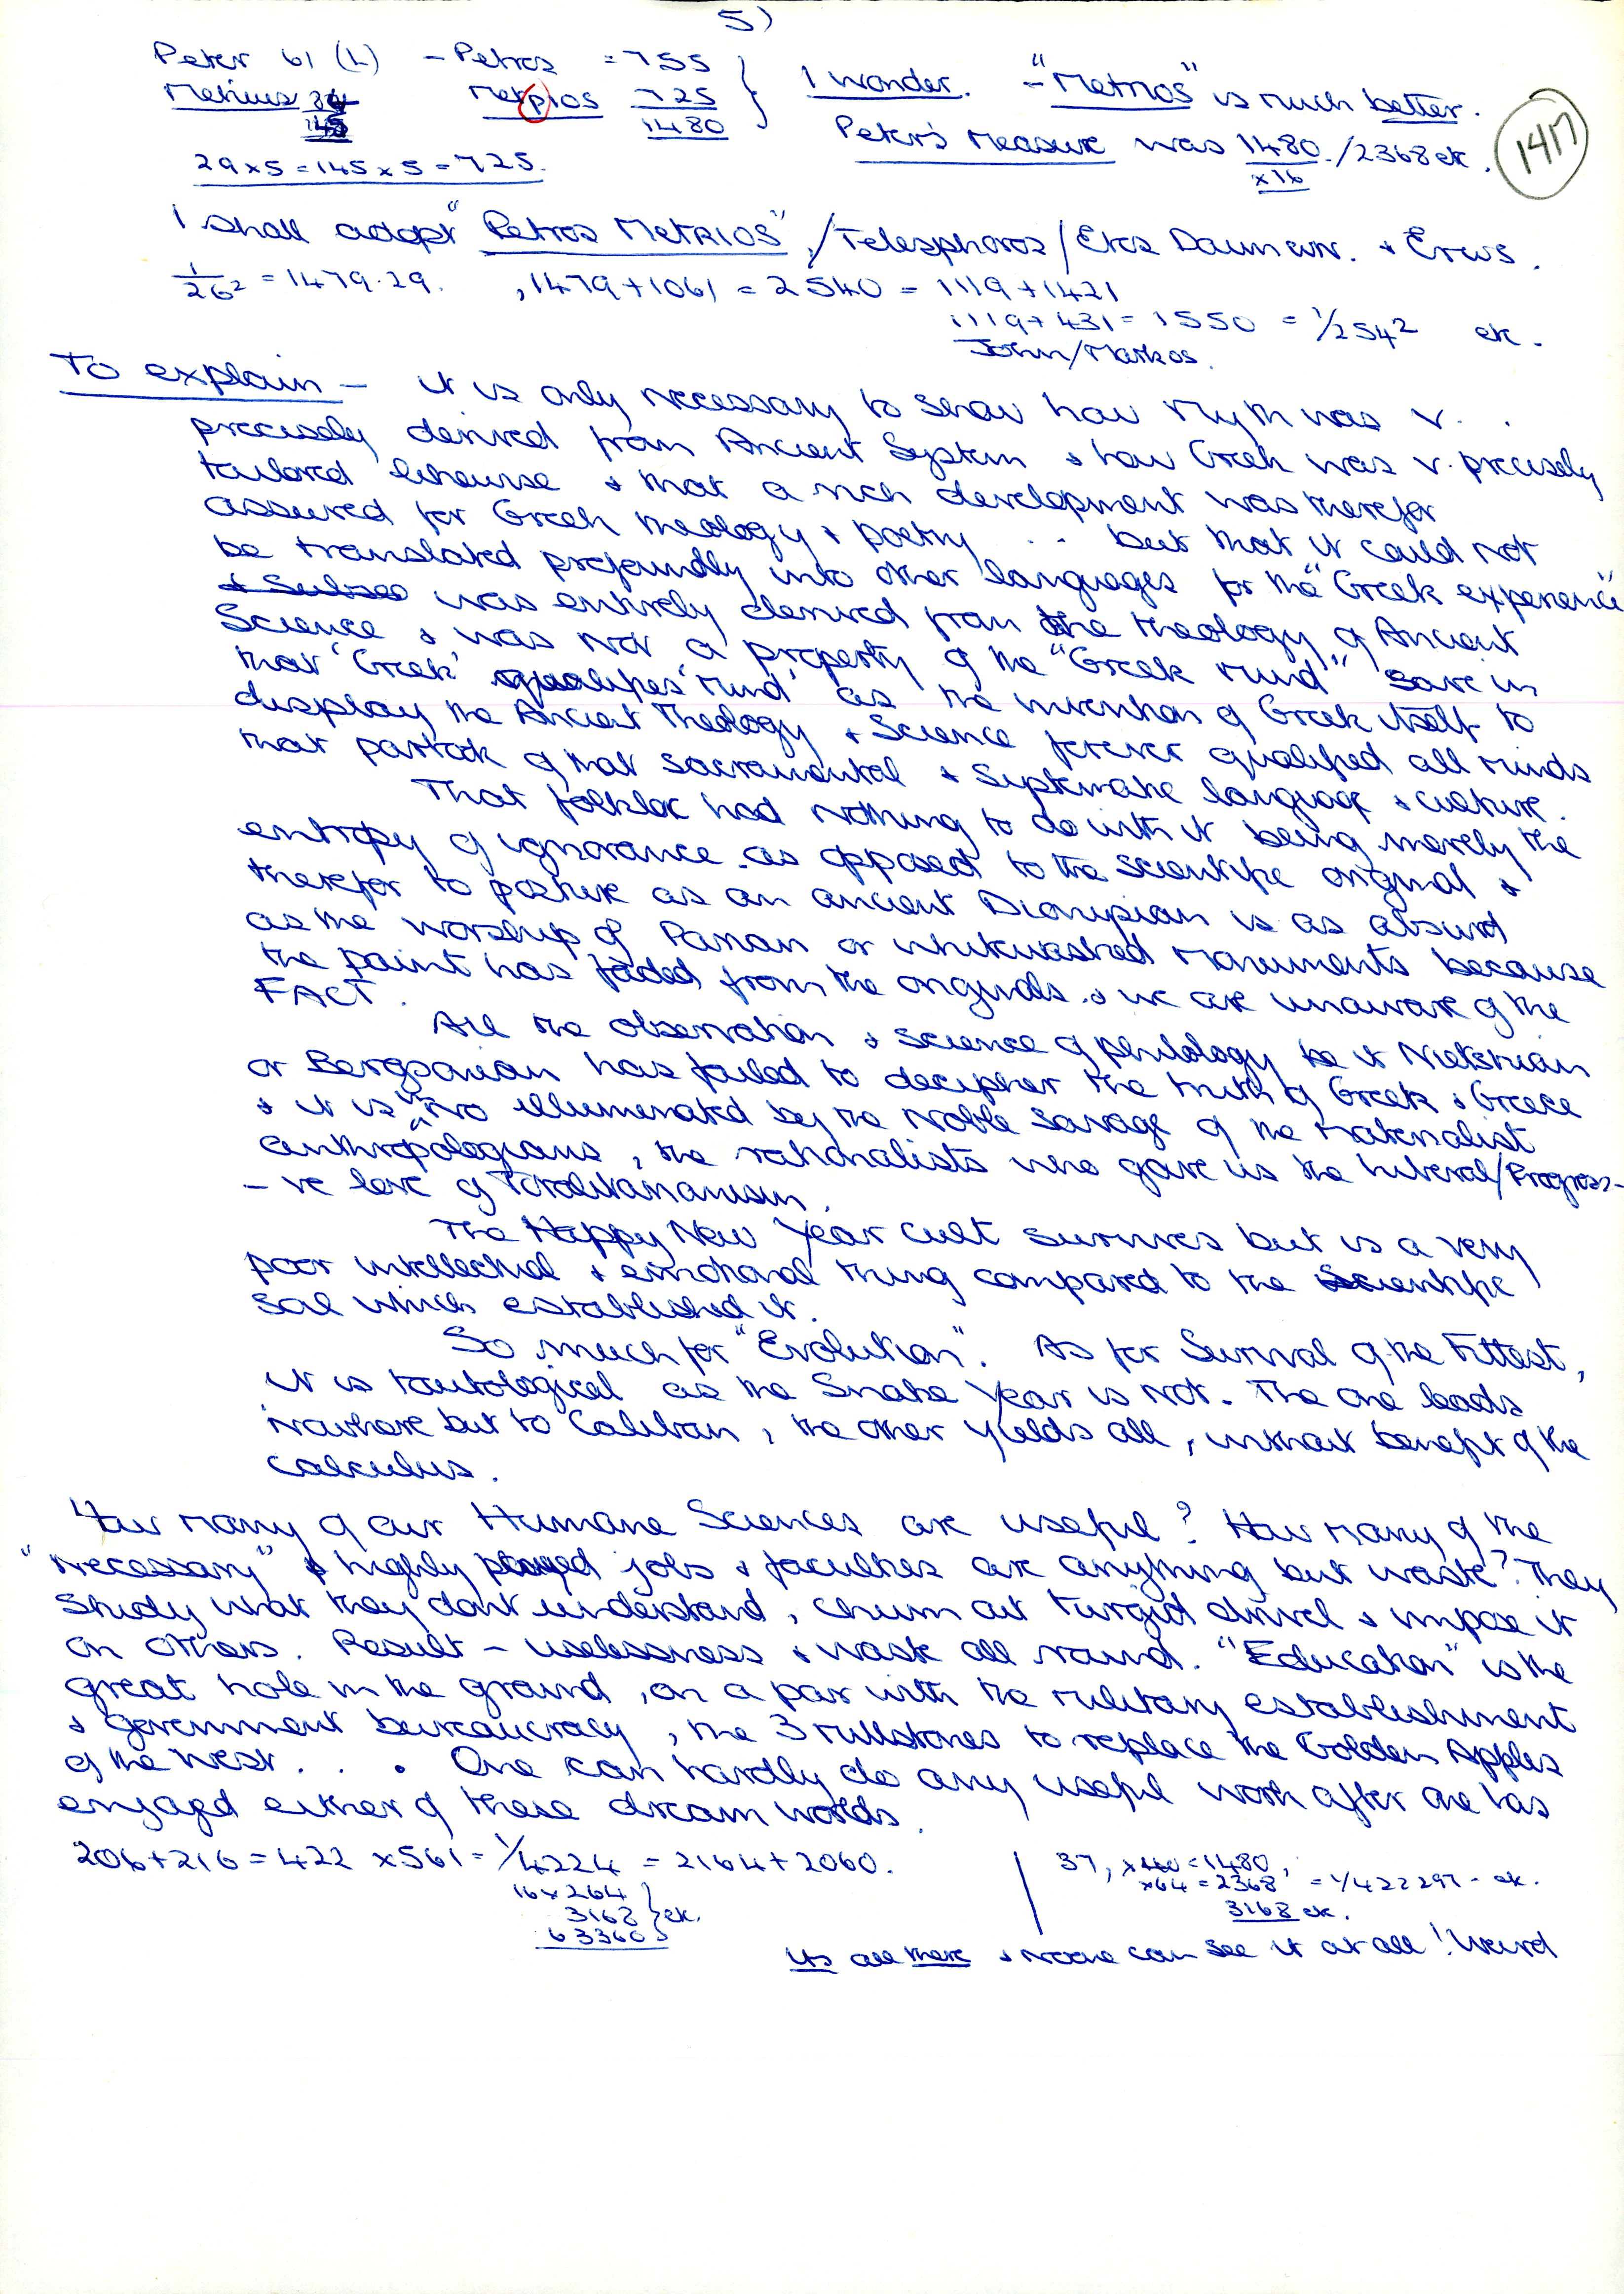 5)
Peter 61 (L) - Petros = 755 } I wonder. - "Metrios" is much better.
Metrius Metριos 725
1480 Peter's Measure was 1480 ./2368 etc. 1417
29 x 5 = 145 x 5 = 725. x 16
I shall adopt "Petros MetRIOS" /Telesphoros/Etos Daimown. & Erws.
1/26² = 1479.29. , 1479 + 1061 = 2540 = 1119 + 1421
1119 + 431 = 1550 = 1/254² etc.
John/Markos.
To explain - it is only necessary to show how Myth was v.
precisely derived from Ancient System & how Greek was v. precisely
tailored likewise & that a rich development was therefor
assured for Greek theology & poetry . . but that it could not
be translated profoundly into other languages for the "Greek experience"
was entirely derived from the theology of Ancient
Science & was not a property of the "Greek Mind" save in
that 'Greek' qualifies 'Mind' as the invention of Greek itself to
display the Ancient Theology & Science forever qualified all minds
that partook of that sacramental & systematic language & culture.
That folklore had nothing to do with it being merely the
entropy of ignorance as opposed to the scientific original &
therefor to posture as an ancient Dionysian is as absurd
as the worship of Roman or whitewashed Monuments because
the paint has faded from the originals & we are unaware of the
FACT.
All the observation & science of philology be it Nietshian
or Bergsonian has failed to decipher the truth of Greek & Greece
& it is no illuminated by the Noble Savage of the Materialist
anthropologians, the rationalists who gave us the Liberal/Progress-
-ve love of Totalitarianism.
The Happy New Year Cult survives but is a very
poor intellectual & emotional thing compared to the Scientific
Soil which established it.
So much for "Evolution". As for Survival of the Fittest,
it is tautological as the Snake Year is not. The one leads
Nowhere but to Caliban, the other yields all, without benefit of the
calculus.
How many of our Humane Sciences are useful? How many of the
"Necessary" & highly played jobs & faculties are anything but waste? They
study what they dont understand, churn out turgid drivel & impose it
on others. Result - uselessness & waste all round. "Education" is the
great hole in the ground, on a par with the military establishment
& government bureaucracy, the 3 Millstones to replace the Golden Apples
of the West. . . One can hardly do any useful work after one has
enjoyed either of these dream worlds.
206 + 216 = 422 x 561 = 1/4224 = 2164 + 2060.
16 x 264
3168 } etc.
63360
37, x 40 = 1480,
x 64 = 2368 = 1/422297 - etc.
3168 etc.
Its all there & noone can see it at all! Weird